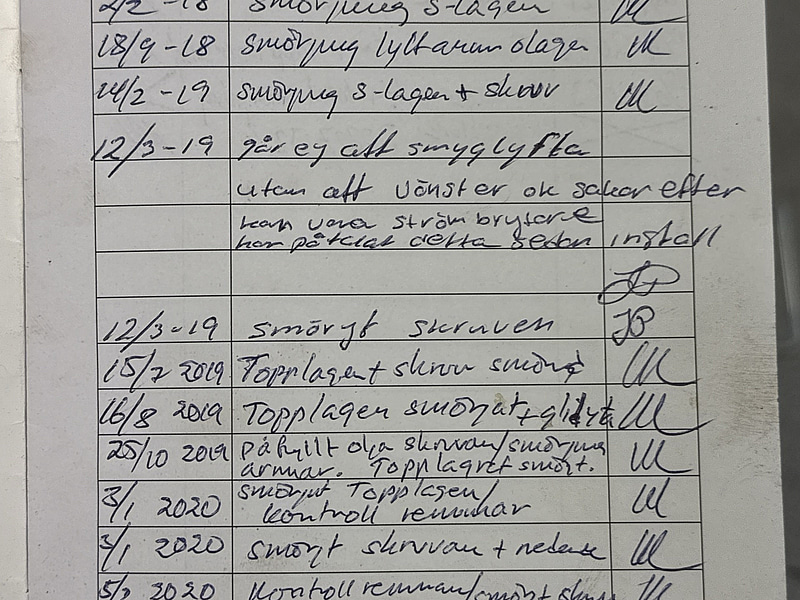 2/2 -18 smörjning s-lagen
18/9 -18 smörjning lyftarm olagen
14/2 -19 smörjning s-lagen + skruv
12/3 -19 går ej att smyglyfta
utan att vönster ok sakar efter
kan vara strömbrytare
har påtalat detta sedan install
JP
12/3-19 smörjt skruven JP
15/7 2019 Topplagen + skruv smörjt
16/8 2019 Topplagen smörjat +
25/10 2019 påfyllt olja skruvan/smörjning
armar. Topplagret smörjt.
3/1 2020 smörjt Topplagen/
kontroll remmar
3/1 2020 smörjt skruvan + nedere
2020 Kontroll remmar/smörjt